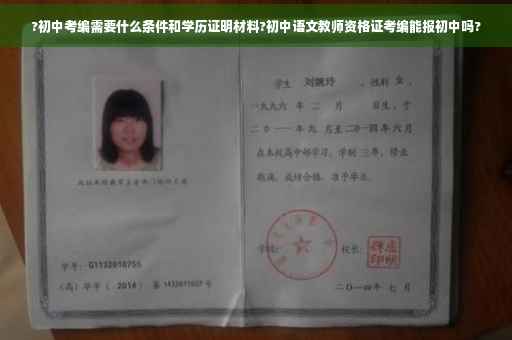 ?初中考编需要什么条件和学历证明材料?初中语文教师资格证考编能报初中吗?
学生 刘婉玲 ,性别 女 ,
一九九六 年 二 月 日生,于
二〇一一 年 九 月至 二〇一四 年 六 月
在本校高中部学习,学制 三 年,修业
期满,成绩合格,准予毕业。
学校:
校长:
学号: G1132010755
(高)毕字( 2014 )第 1432011027 号
二〇一四年 七 月